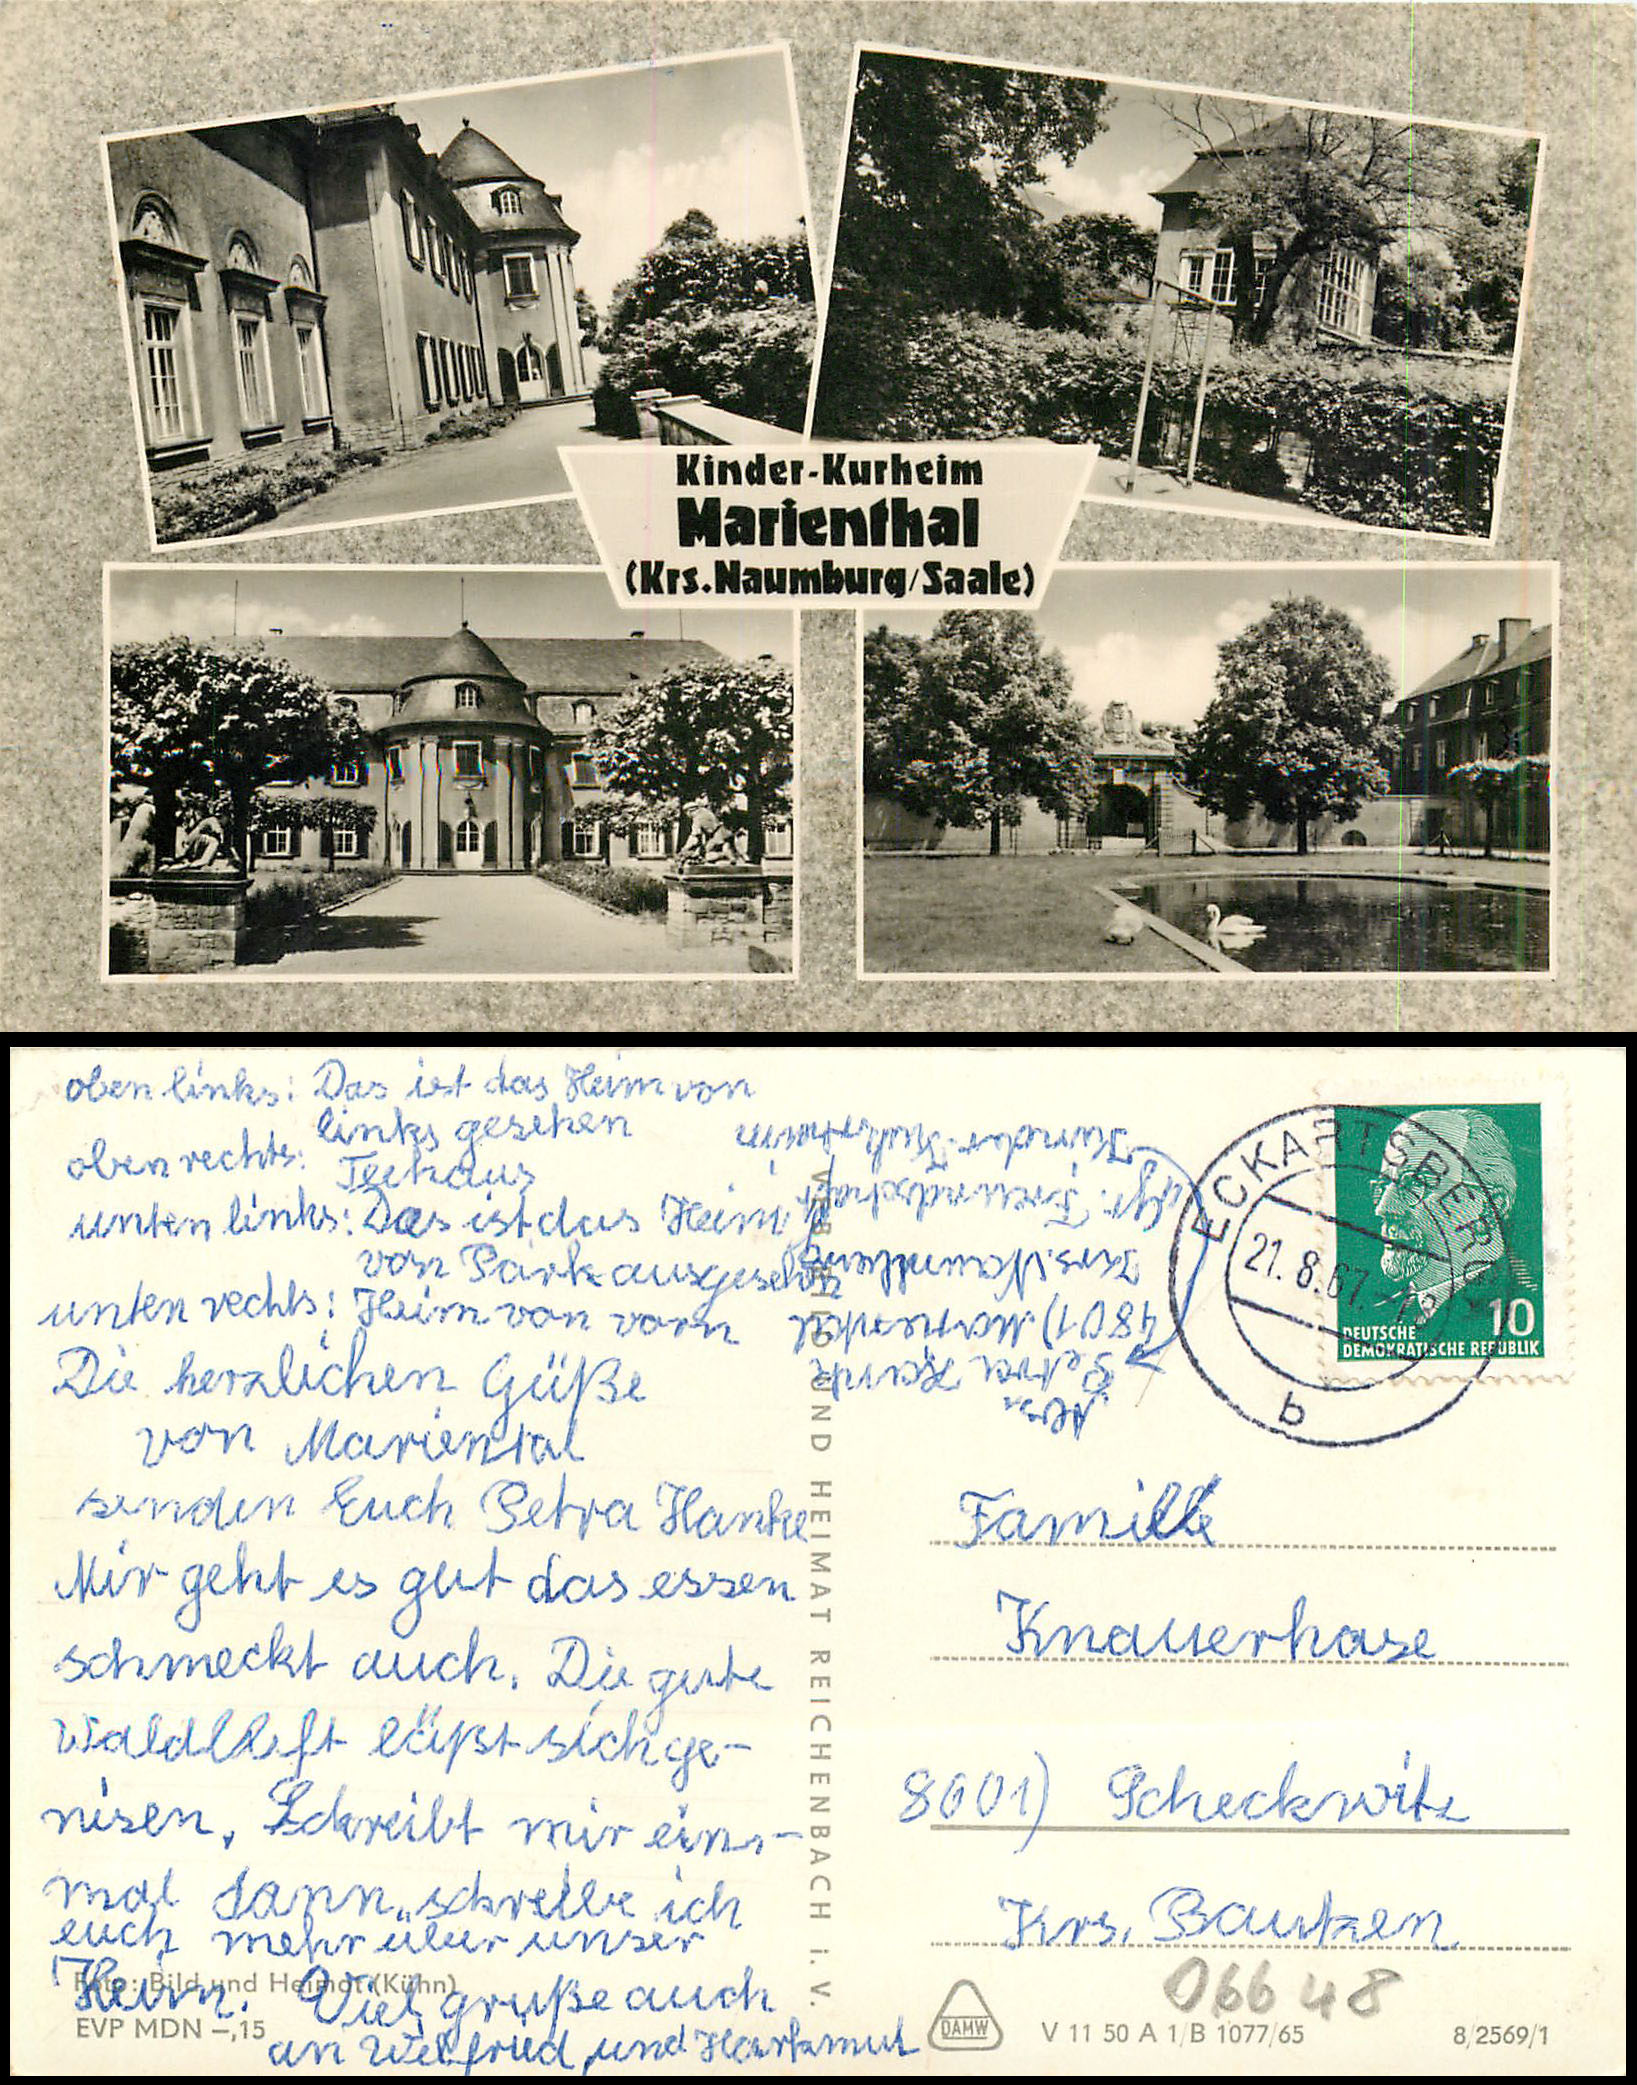 Kinder-Kurheim
Marienthal
(Krs. Naumburg/Saale)
oben links: Das ist das Heim von
links gesehen
oben rechts: Teehaus
unten links: Das ist das Heim
von Park ausgesehen
unten rechts: Heim von vorn
Die herzlichen Güße
von Mariental
senden Euch Petra Hanke
Mir geht es gut das essen
schmeckt auch. Die gute
Waldluft läßt sich ge-
nisen. Schreibt mir eins-
mal dann schreibe ich
euch mehr über unser
Heim. Viel grüße auch
an Welfried und Hartmut
Foto: Bild und Heimat (Kühn)
EVP MDN –,15
VEB BILD UND HEIMAT REICHENBACH i. V.
Absn
Petra Hanke
4801) Marienthal
Krs. Naumburg
Freundschaft
Kinder-Kuhrheim
ECKARTSBERGA
21.8.67.-12
b
10
DEUTSCHE
DEMOKRATISCHE REPUBLIK
Familie
Knauerhase
8601) Scheckwitz
Krs. Bautzen
06648
DAMW
V 11 50 A 1/B 1077/65
8/2569/1